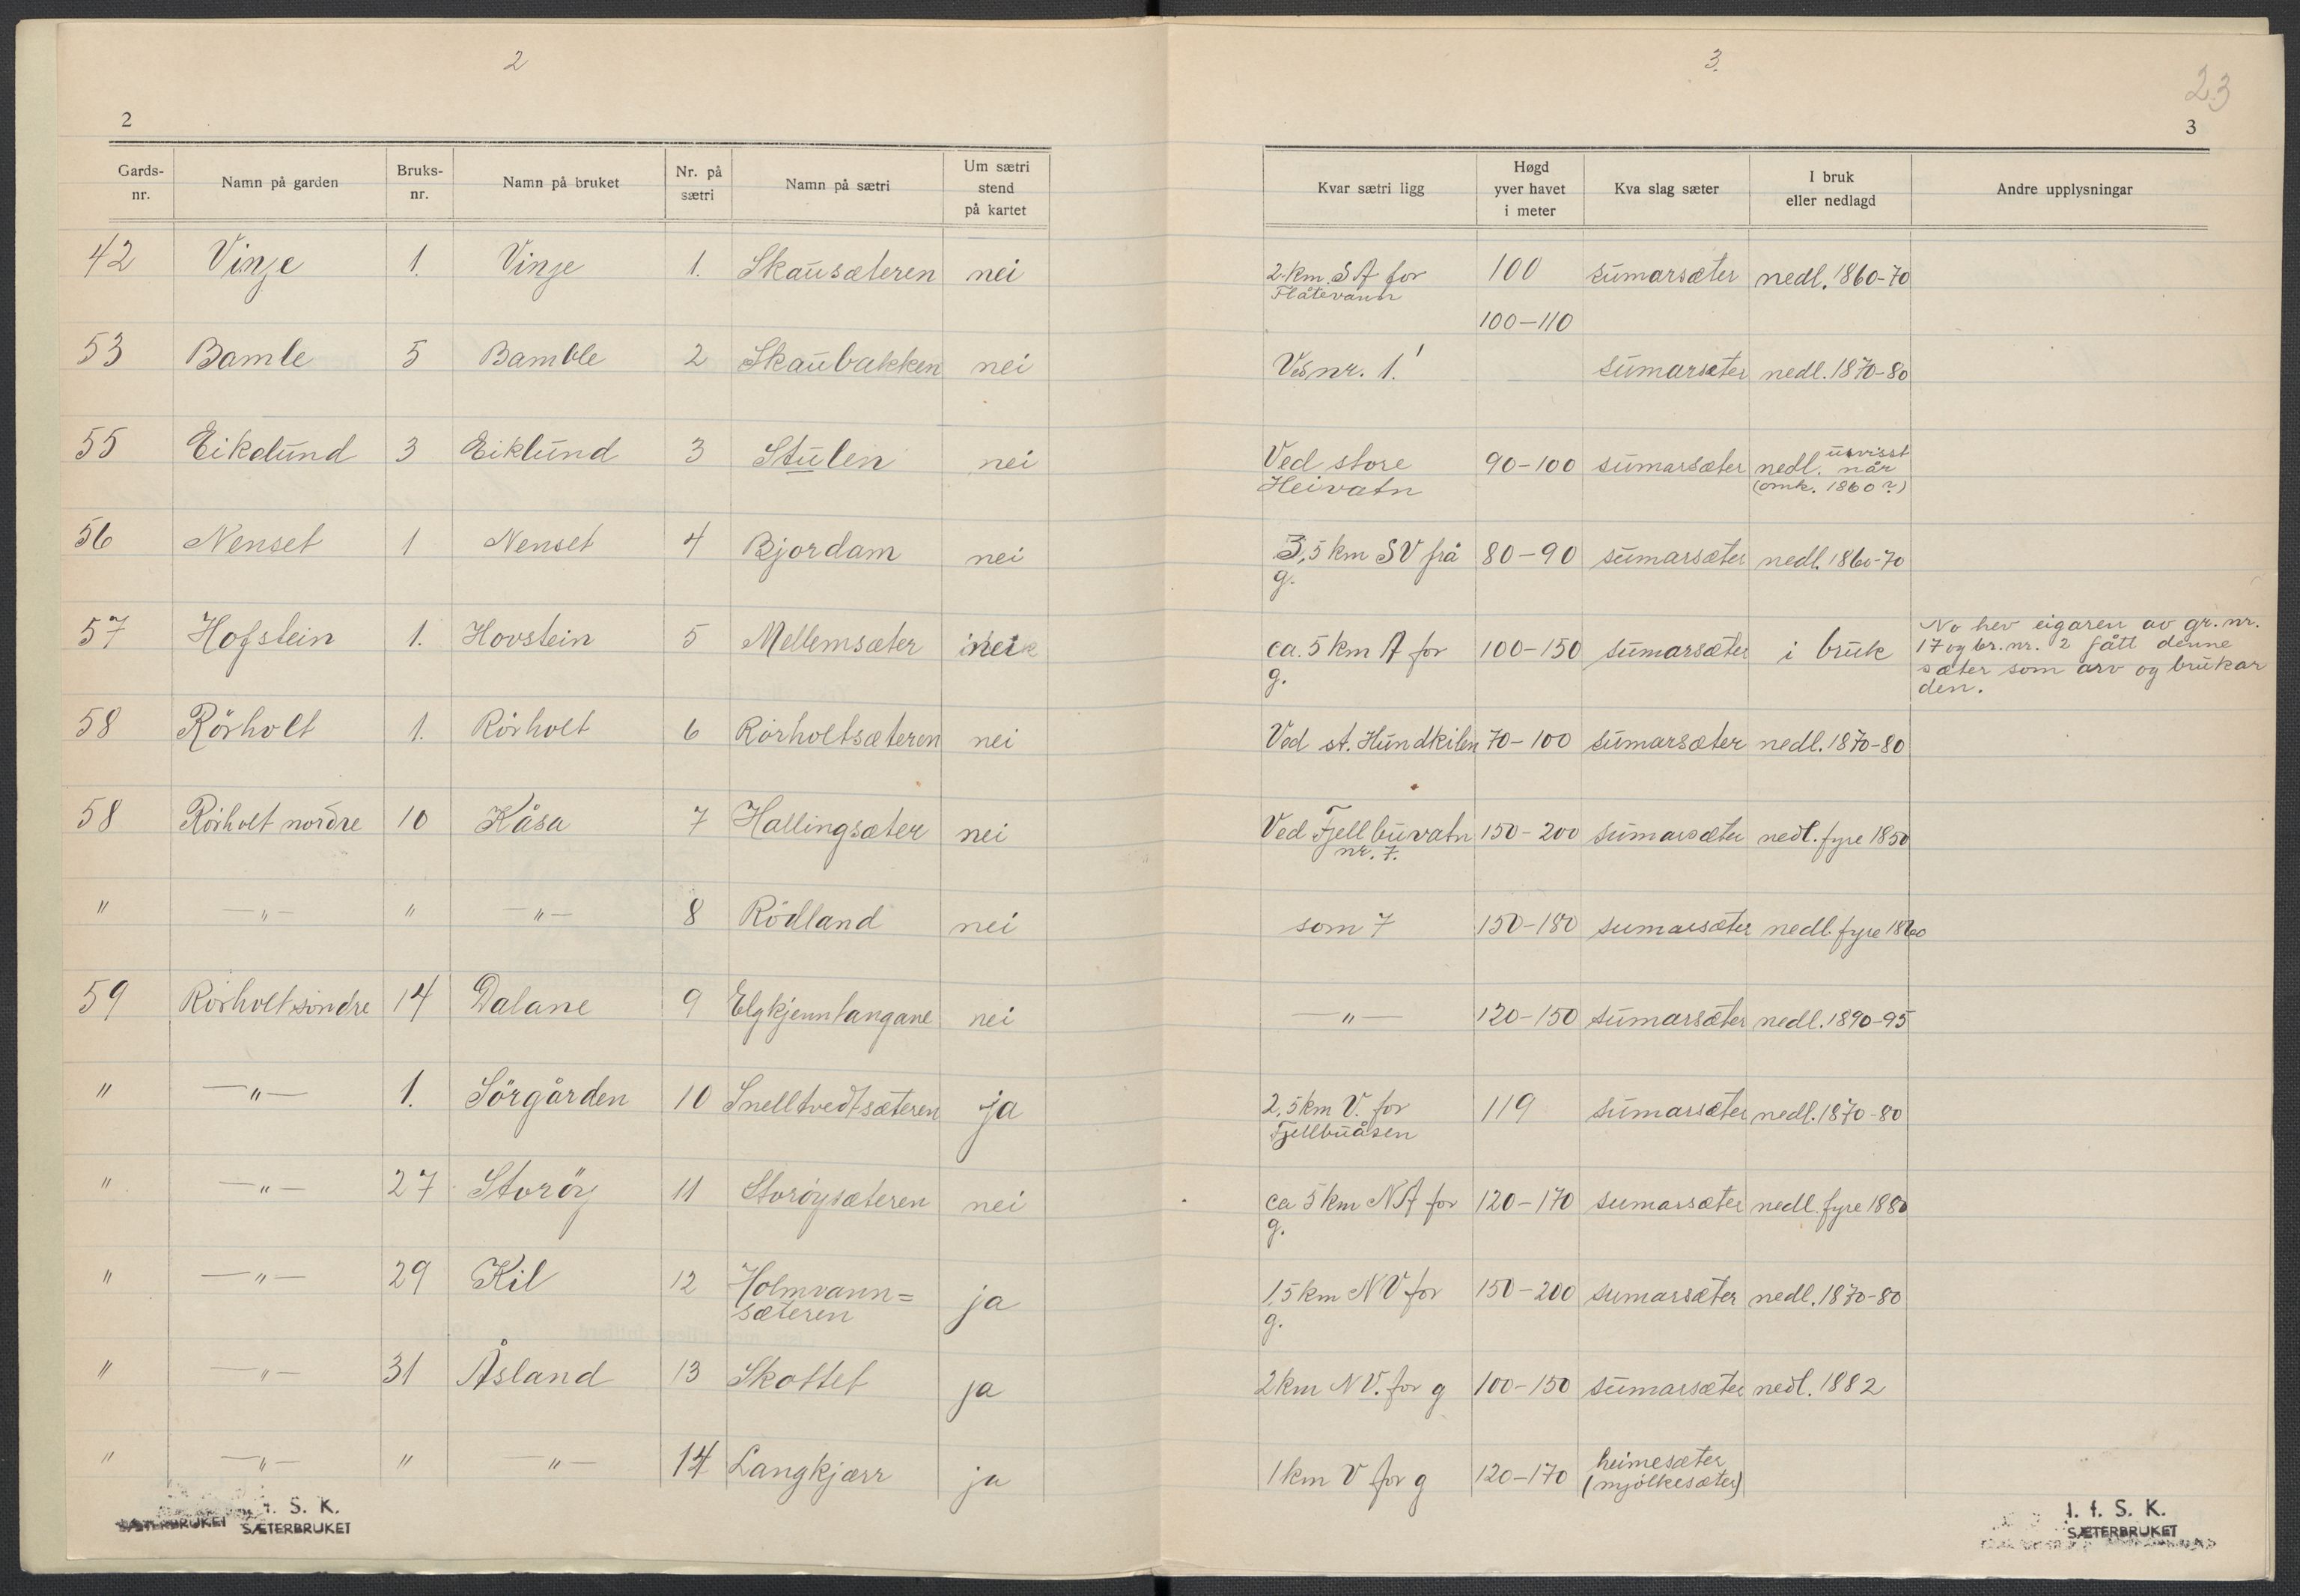 2
2
Gards-nr. | Namn på garden | Bruks-nr. | Namn på bruket | Nr. på sætri | Namn på sætri | Um sætri stend på kartet
42 | Vinje | 1. | Vinje | 1. | Skausæteren | nei
53 | Bamle | 5 | Bamble | 2 | Skaubakken | nei
55 | Eikelund | 3 | Eiklund | 3 | Stulen | nei
56 | Nenset | 1 | Nenset | 4 | Bjordam | nei
57 | Hofstein | 1. | Hovstein | 5 | Mellemsæter | nei
58 | Rörholt | 1. | Rörholt | 6 | Rörholtsæteren | nei
58 | Rörholt nordre | 10 | Kåsa | 7 | Hallingsæter | nei
" | —"— | " | —"— | 8 | Rödland | nei
59 | Rörholt söndre | 14 | Dalane | 9 | Elgkjenntangane | nei
" | —"— | 1. | Sörgården | 10 | Snelltvedtsæteren | ja
" | —"— | 27 | Storöy | 11 | Storöysæteren | nei
" | —"— | 29 | Kil | 12 | Holmvann=
sæteren | ja
" | —"— | 31 | Åsland | 13 | Skottet | ja
" | —"— | " | —"— | 14 | Langkjærr | ja
S. K.
SÆTERBRUKET
SÆTERBRUKET
3.
23
3
Kvar sætri ligg | Høgd yver havet i meter | Kva slag sæter | I bruk eller nedlagd | Andre upplysningar
2 km. SA for
Flåtevann | 100 | sumarsæter | nedl. 1860-70
100-110
Ved nr. 1! | sumarsæter | nedl. 1870-80
Ved store
Heivatn | 90-100 | sumarsæter | nedl. uvisst når
(omk. 1860?)
3,5 km SV frå
g. | 80-90 | sumarsæter | nedl. 1860-70
ca. 5 km A for
g. | 100-150 | sumarsæter | i bruk | No hev eigaren av gr. nr.
17 og br. nr. 2 fått denne
sæter som arv og brukar
den.
Ved st. Hundkilen | 70-100 | sumarsæter | nedl. 1870-80
Ved Fjellbuvatn
nr. 7. | 150-200 | sumarsæter | nedl. fyre 1850
som 7 | 150-180 | sumarsæter | nedl. fyre 1860
—"— | 120-150 | sumarsæter | nedl. 1890-95
2,5 km V. for
Fjellbuåsen | 119 | sumarsæter | nedl. 1870-80
ca 5 km NA for
g. | 120-170 | sumarsæter | nedl. fyre 1880
1,5 km NV for
g. | 150-200 | sumarsæter | nedl. 1870-80
2 km NV. for g | 100-150 | sumarsæter | nedl. 1882
1 km V for g | 120-170 | heimesæter
(mjölkesæter)
I. f. S. K.
SÆTERBRUKET